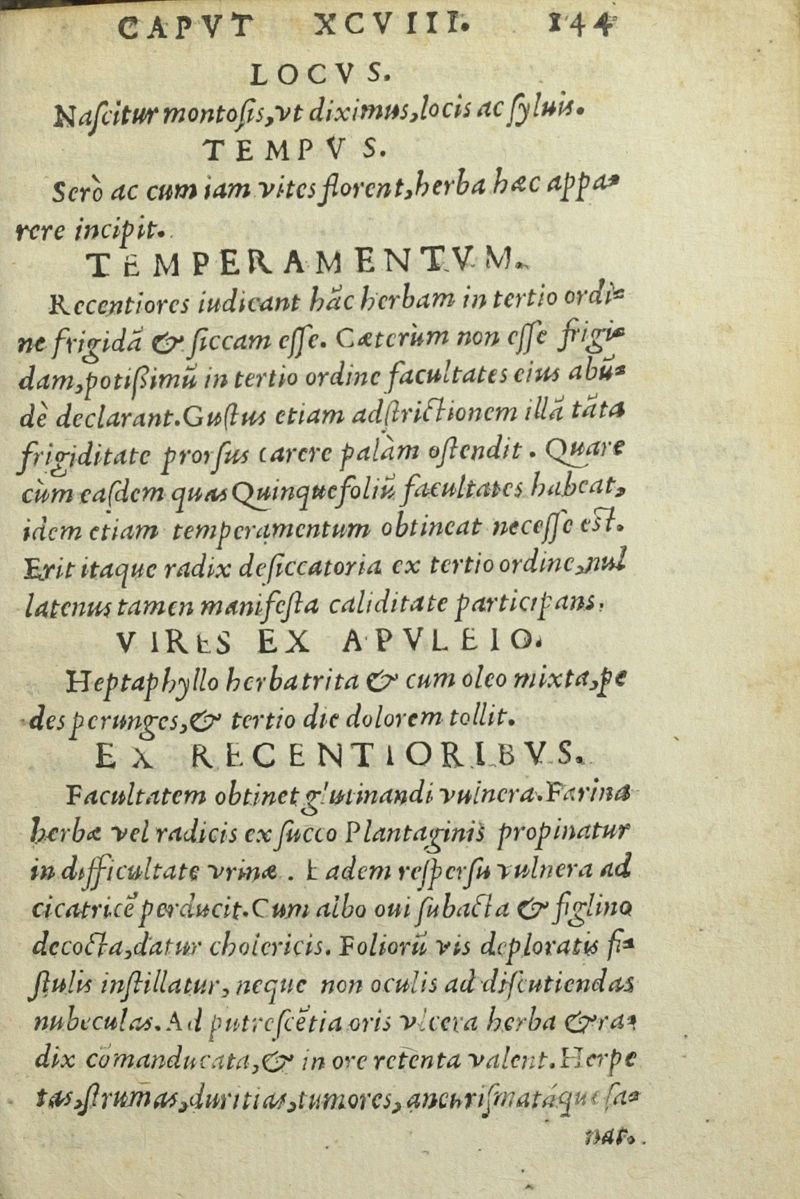 CAPVT XCVIII. 144
LOCVS.
Naſcitur montoſis,vt diximus,locis ac ſyluis.
TEMPVS.
Serò ac cum iam vites florent,herba hæc appa-
rere incipit.
TEMPERAMENTVM.
Recentiores iudicant hãc herbam in tertio ordi-
ne frigidã & ſiccam eſſe. Cæterùm non eſſe frigi-
dam,potißimũ in tertio ordine facultates eius abũ-
dè declarant.Guſtus etiam adſtrictionem illã tãta
frigiditate prorſus carere palàm oſtendit. Quare
cùm eaſdem quas Quinquefoliũ facultates habeat,
idem etiam temperamentum obtineat neceſſe eſt.
Erit itaque radix deſiccatoria ex tertio ordine,nul
latenus tamen manifeſta caliditate participans.
VIRES EX APVLEIO.
Heptaphyllo herba trita & cum oleo mixta,pe
des perunges,& tertio die dolorem tollit.
EX RECENTIORIBVS.
Facultatem obtinet glutinandi vulnera.Farina
herbæ vel radicis ex ſucco Plantaginis propinatur
in difficultate vrinæ. Eadem reſperſu vulnera ad
cicatricẽ perducit.Cum albo oui ſubacta & figlino
decocta,datur cholericis. Foliorũ vis deploratis fi-
ſtulis inſtillatur, neque non oculis ad diſcutiendas
nubeculas.Ad putreſcẽtia oris vlcera herba & ra-
dix cõmanducata,& in ore retenta valent.Herpe
tas,ſtrumas,duritias,tumores, aneuriſmatáque ſa-
nat.